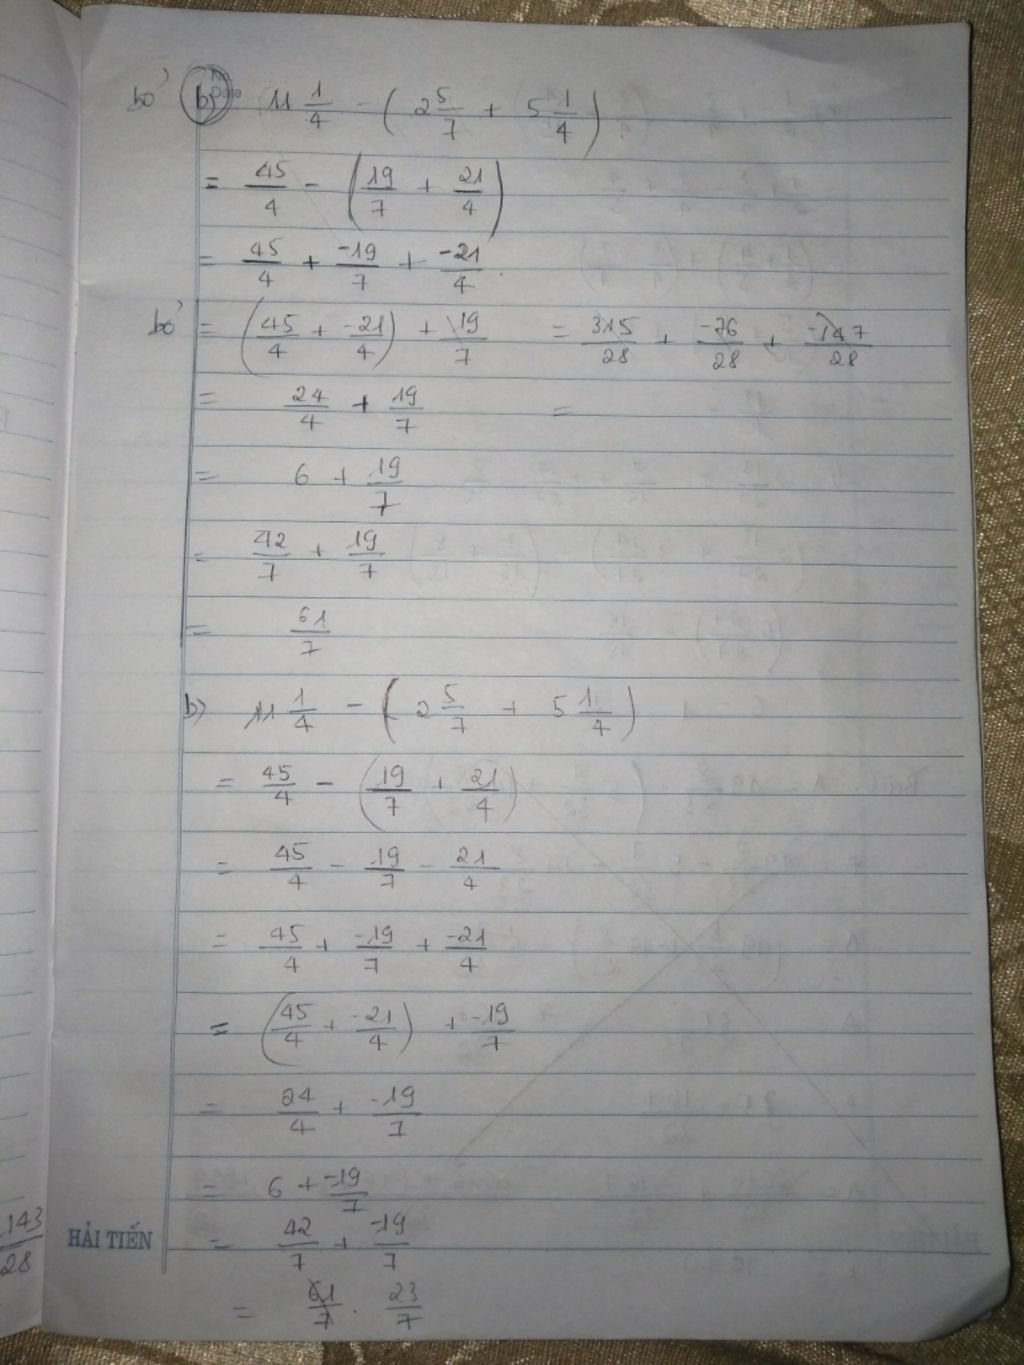 bỏ b) 11 1/4 - ( 2 5/7 + 5 1/4 )
= 45/4 - ( 19/7 + 21/4 )
= 45/4 + -19/7 + -21/4
bỏ = ( 45/4 + -21/4 ) + 19/7 = 315/28 + -76/28 + -147/28
= 24/4 + 19/7 =
= 6 + 19/7
= 42/7 + 19/7
= 61/7
b) 11 1/4 - ( 2 5/7 + 5 1/4 )
= 45/4 - ( 19/7 + 21/4 )
= 45/4 - 19/7 - 21/4
= 45/4 + -19/7 + -21/4
= ( 45/4 + -21/4 ) + -19/7
= 24/4 + -19/7
= 6 + -19/7
143/28 HẢI TIẾN = 42/7 + -19/7
= 61/7 . 23/7